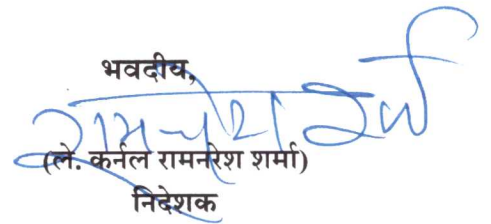 भवदीय,
रामनरेश शर्मा
(ले. कर्नल रामनरेश शर्मा)
निदेशक